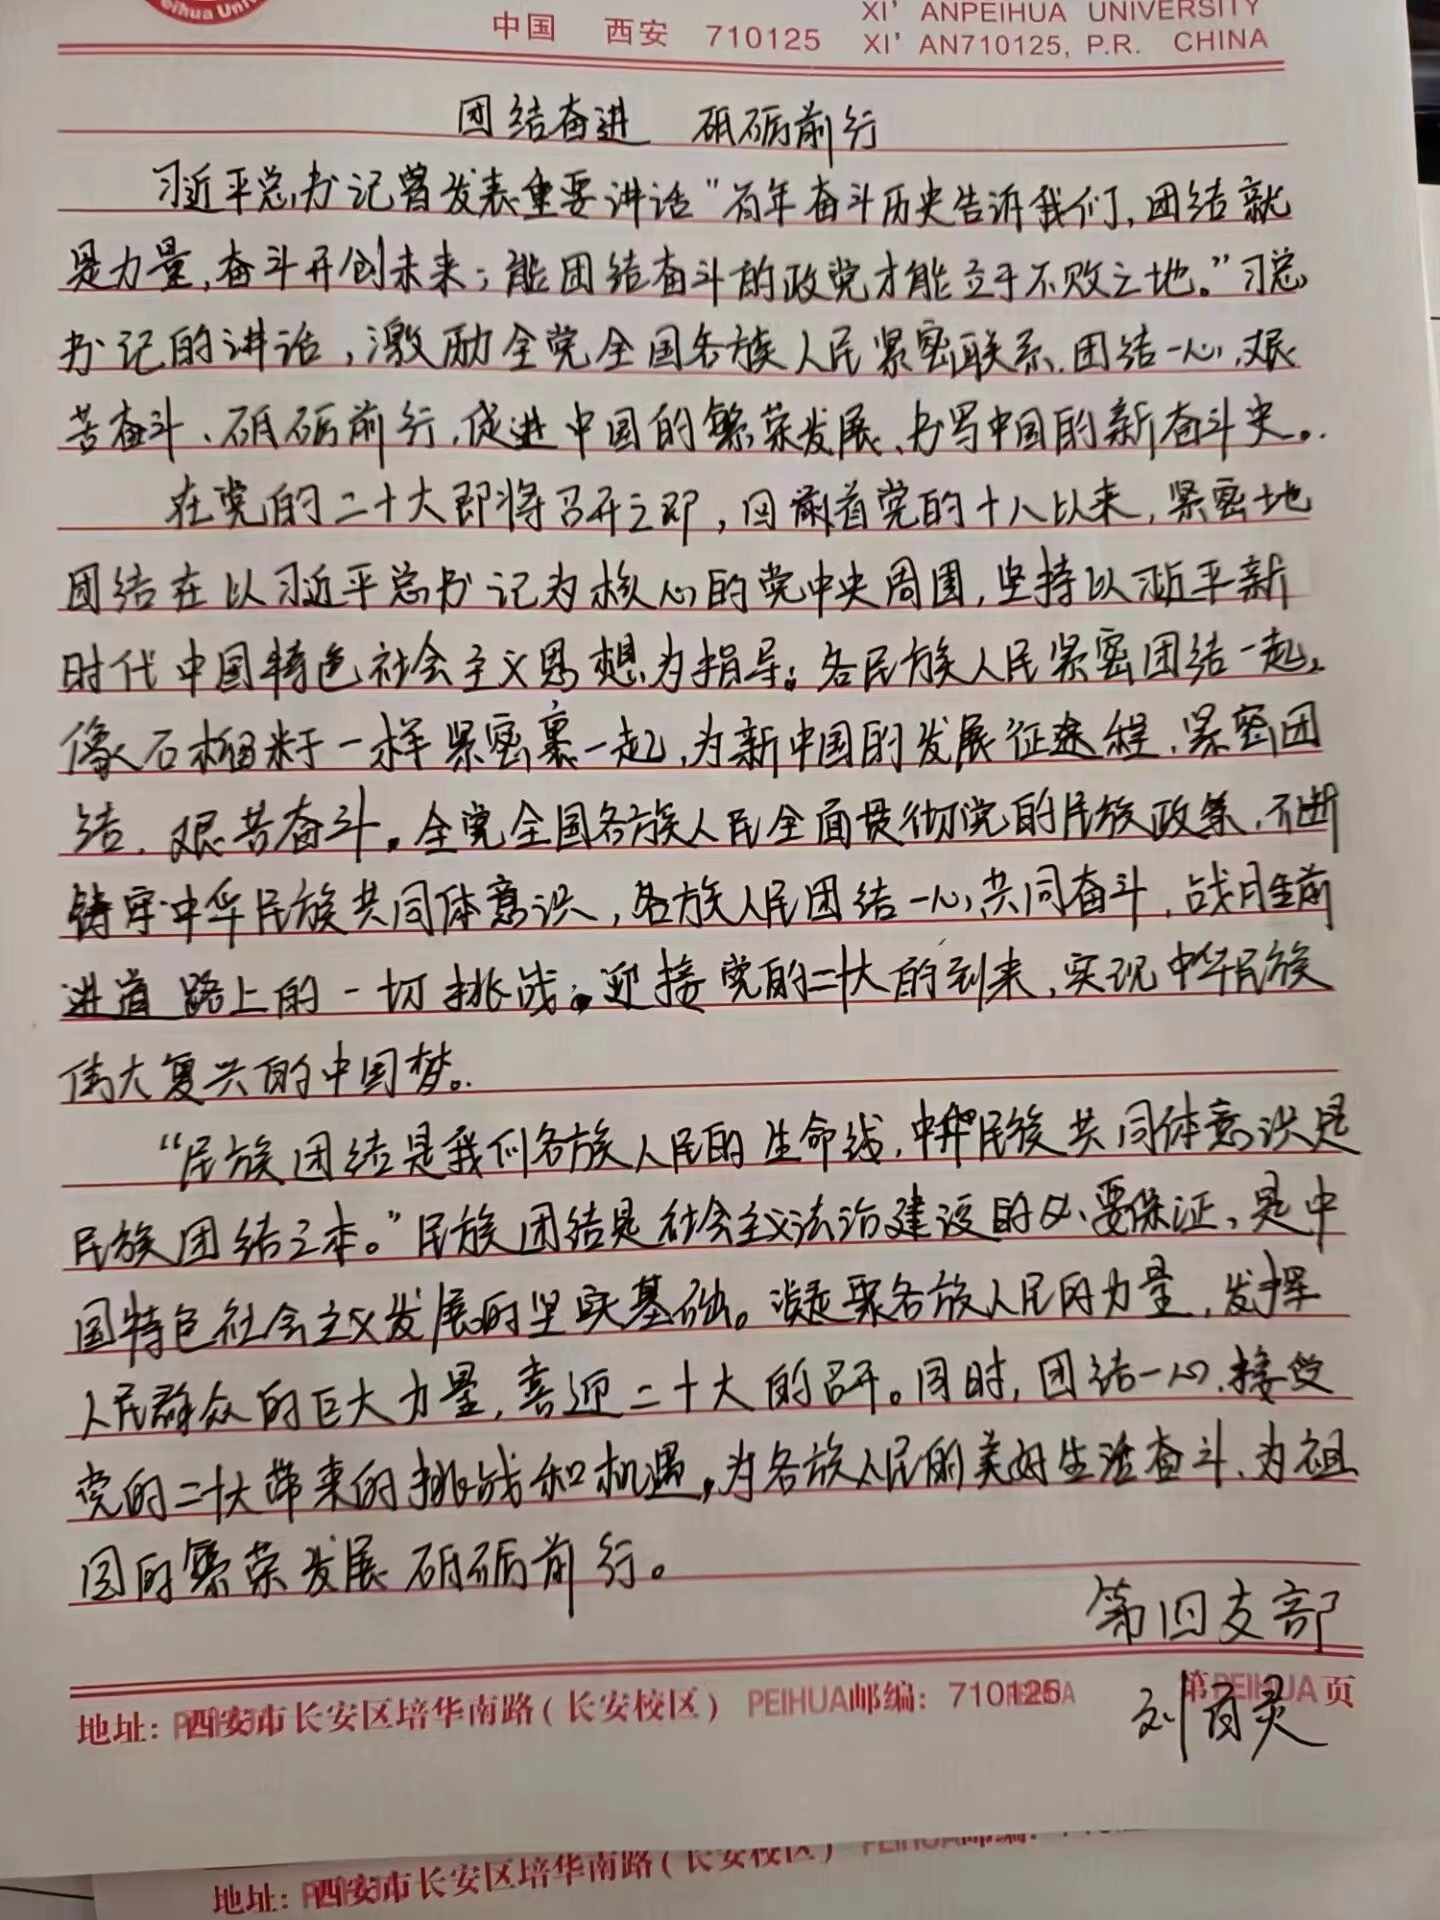 eihua Univ
中国 西安 710125
XI' ANPEIHUA UNIVERSITY
XI' AN710125, P.R. CHINA
团结奋进 砥砺前行
习近平总书记曾发表重要讲话"百年奋斗历史告诉我们,团结就
是力量,奋斗开创未来;能团结奋斗的政党才能立于不败之地。"习总
书记的讲话,激励全党全国各族人民紧密联系、团结一心,艰
苦奋斗、砥砺前行,促进中国的繁荣发展、书写中国的新奋斗史。
在党的二十大即将召开之即,回前首党的十八以来,紧密地
团结在以习近平总书记为核心的党中央周围,坚持以习近平新
时代中国特色社会主义思想为指导。各民族人民紧密团结一起,
像石榴籽一样紧密裹一起,为新中国的发展征途程,紧密团
结,艰苦奋斗。全党全国各族人民全面贯彻党的民族政策,不断
铸牢中华民族共同体意识,各族人民团结一心,共同奋斗,战胜前
进道路上的一切挑战。迎接党的二十大的到来,实现中华民族
伟大复兴的中国梦。
"民族团结是我们各族人民的生命线,中华民族共同体意识是
民族团结之本。"民族团结是社会主义法治建设的必要保证,是中
国特色社会主义发展的坚实基础。凝聚各族人民的力量,发挥
人民群众的巨大力量,喜迎二十大的召开。同时,团结一心,接受
党的二十大带来的挑战和机遇,为各族人民的美好生活奋斗、为祖
国的繁荣发展砥砺前行。
第四支部
刘百灵
地址: 西安市长安区培华南路(长安校区) PEIHUA邮编: 710125 第 页
地址: 西安市长安区培华南路(长安校区)